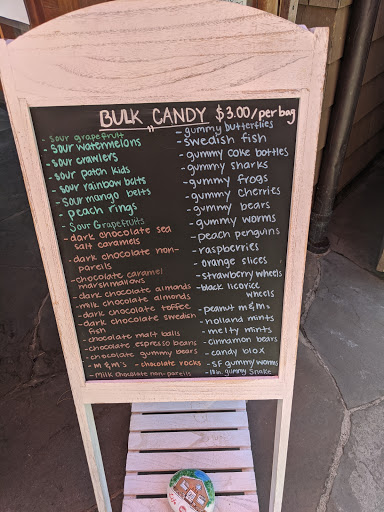 BULK CANDY $3.00/per bag
- sour grapefruit
- sour watermelons
- sour crawlers
- sour patch kids
- sour rainbow belts
- sour mango belts
- peach rings
Sour Grapefruits
- dark chocolate sea
salt caramels
- dark chocolate non-
pareils
- chocolate caramel
marshmallows
- dark chocolate almonds
- milk chocolate almonds
- dark chocolate toffee
- dark chocolate swedish
fish
- chocolate malt balls
- chocolate espresso beans
- chocolate gummy bears
- m & m's - chocolate rocks
- milk chocolate non-pareils
- gummy butterflies
- swedish fish
- gummy coke bottles
- gummy sharks
- gummy frogs
- gummy cherries
- gummy bears
- gummy worms
- peach penguins
- raspberries
- orange slices
- strawberry wheels
- black licorice
wheels
- peanut m & m's
- holland mints
- melty mints
- cinnamon bears
- candy blox
- SF gummy/worms
- 18in. gummy snake